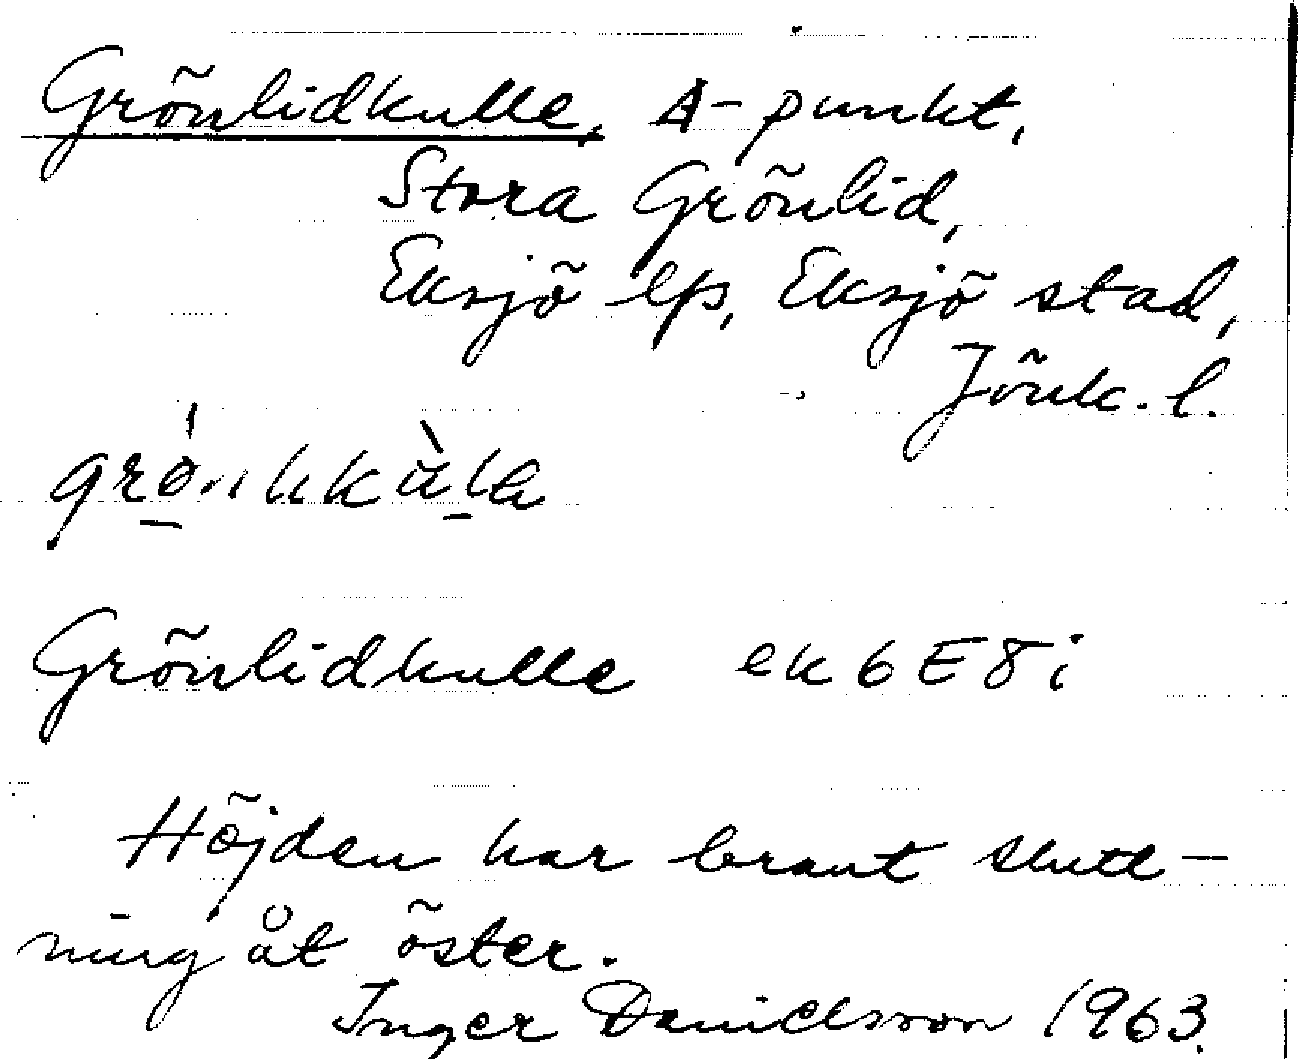 Grönlidkulle, A-punkt,
Stora Grönlid,
Eksjö lfs, Eksjö stad,
Jönk. l.
Grönlidkulle ek 6 E 8 i
Höjden har brant slutt-
ning åt öster.
Inger Danielsson 1963.